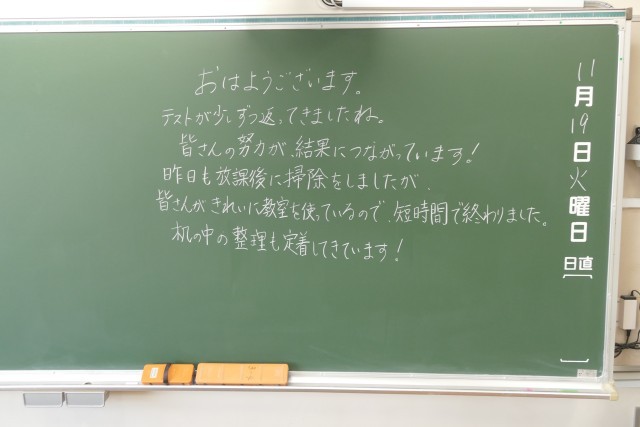 おはようございます。
テストが少しずつ返ってきましたね。
皆さんの努力が、結果につながっています!
昨日も放課後に掃除をしましたが、
皆さんがきれいに教室を使っているので、短時間で終わりました。
机の中の整理も定着してきています!
11月19日火曜日
日直